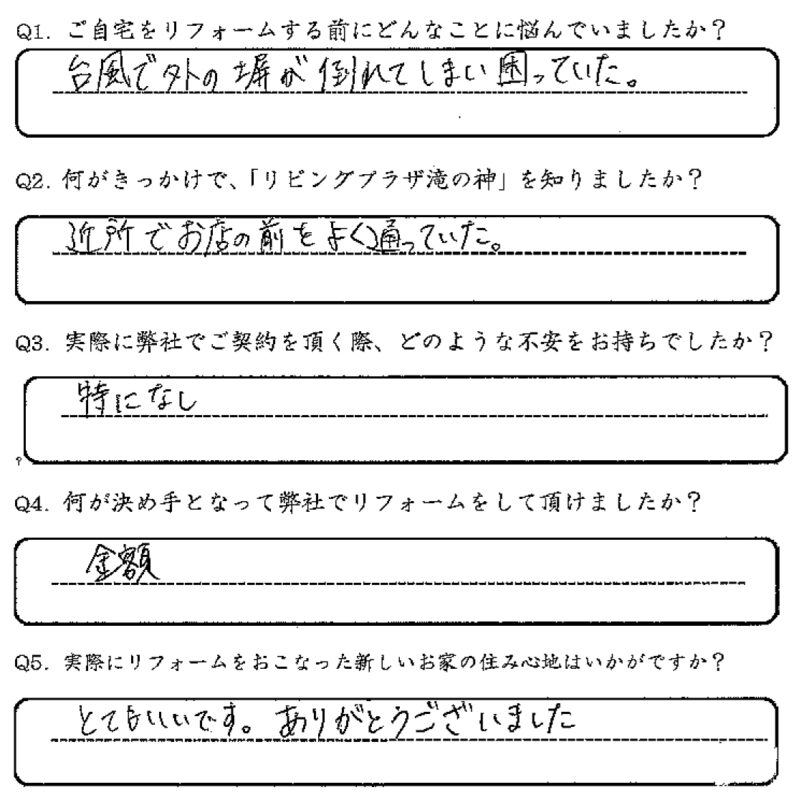 Q1. ご自宅をリフォームする前にどんなことに悩んでいましたか？
台風で外の塀が倒れてしまい困っていた。
Q2. 何がきっかけで、「リビングプラザ滝の神」を知りましたか？
近所でお店の前をよく通っていた。
Q3. 実際に弊社でご契約を頂く際、どのような不安をお持ちでしたか？
特になし
Q4. 何が決め手となって弊社でリフォームをして頂けましたか？
金額
Q5. 実際にリフォームをおこなった新しいお家の住み心地はいかがですか？
とてもいいです。ありがとうございました